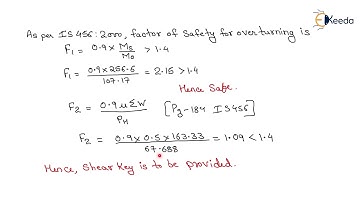 Ekeeda
As per IS 456:2000, factor of Safety for overturning is
F1 = 0.9 × Ms / Mo > 1.4
F1 = 0.9 × 256.6 / 107.17 = 2.15 > 1.4
Hence Safe.
F2 = 0.9 μ ΣW / PH [Pg-184 IS 456]
F2 = 0.9 × 0.5 × 163.33 / 67.688 = 1.09 < 1.4
Hence, Shear Key is to be provided.